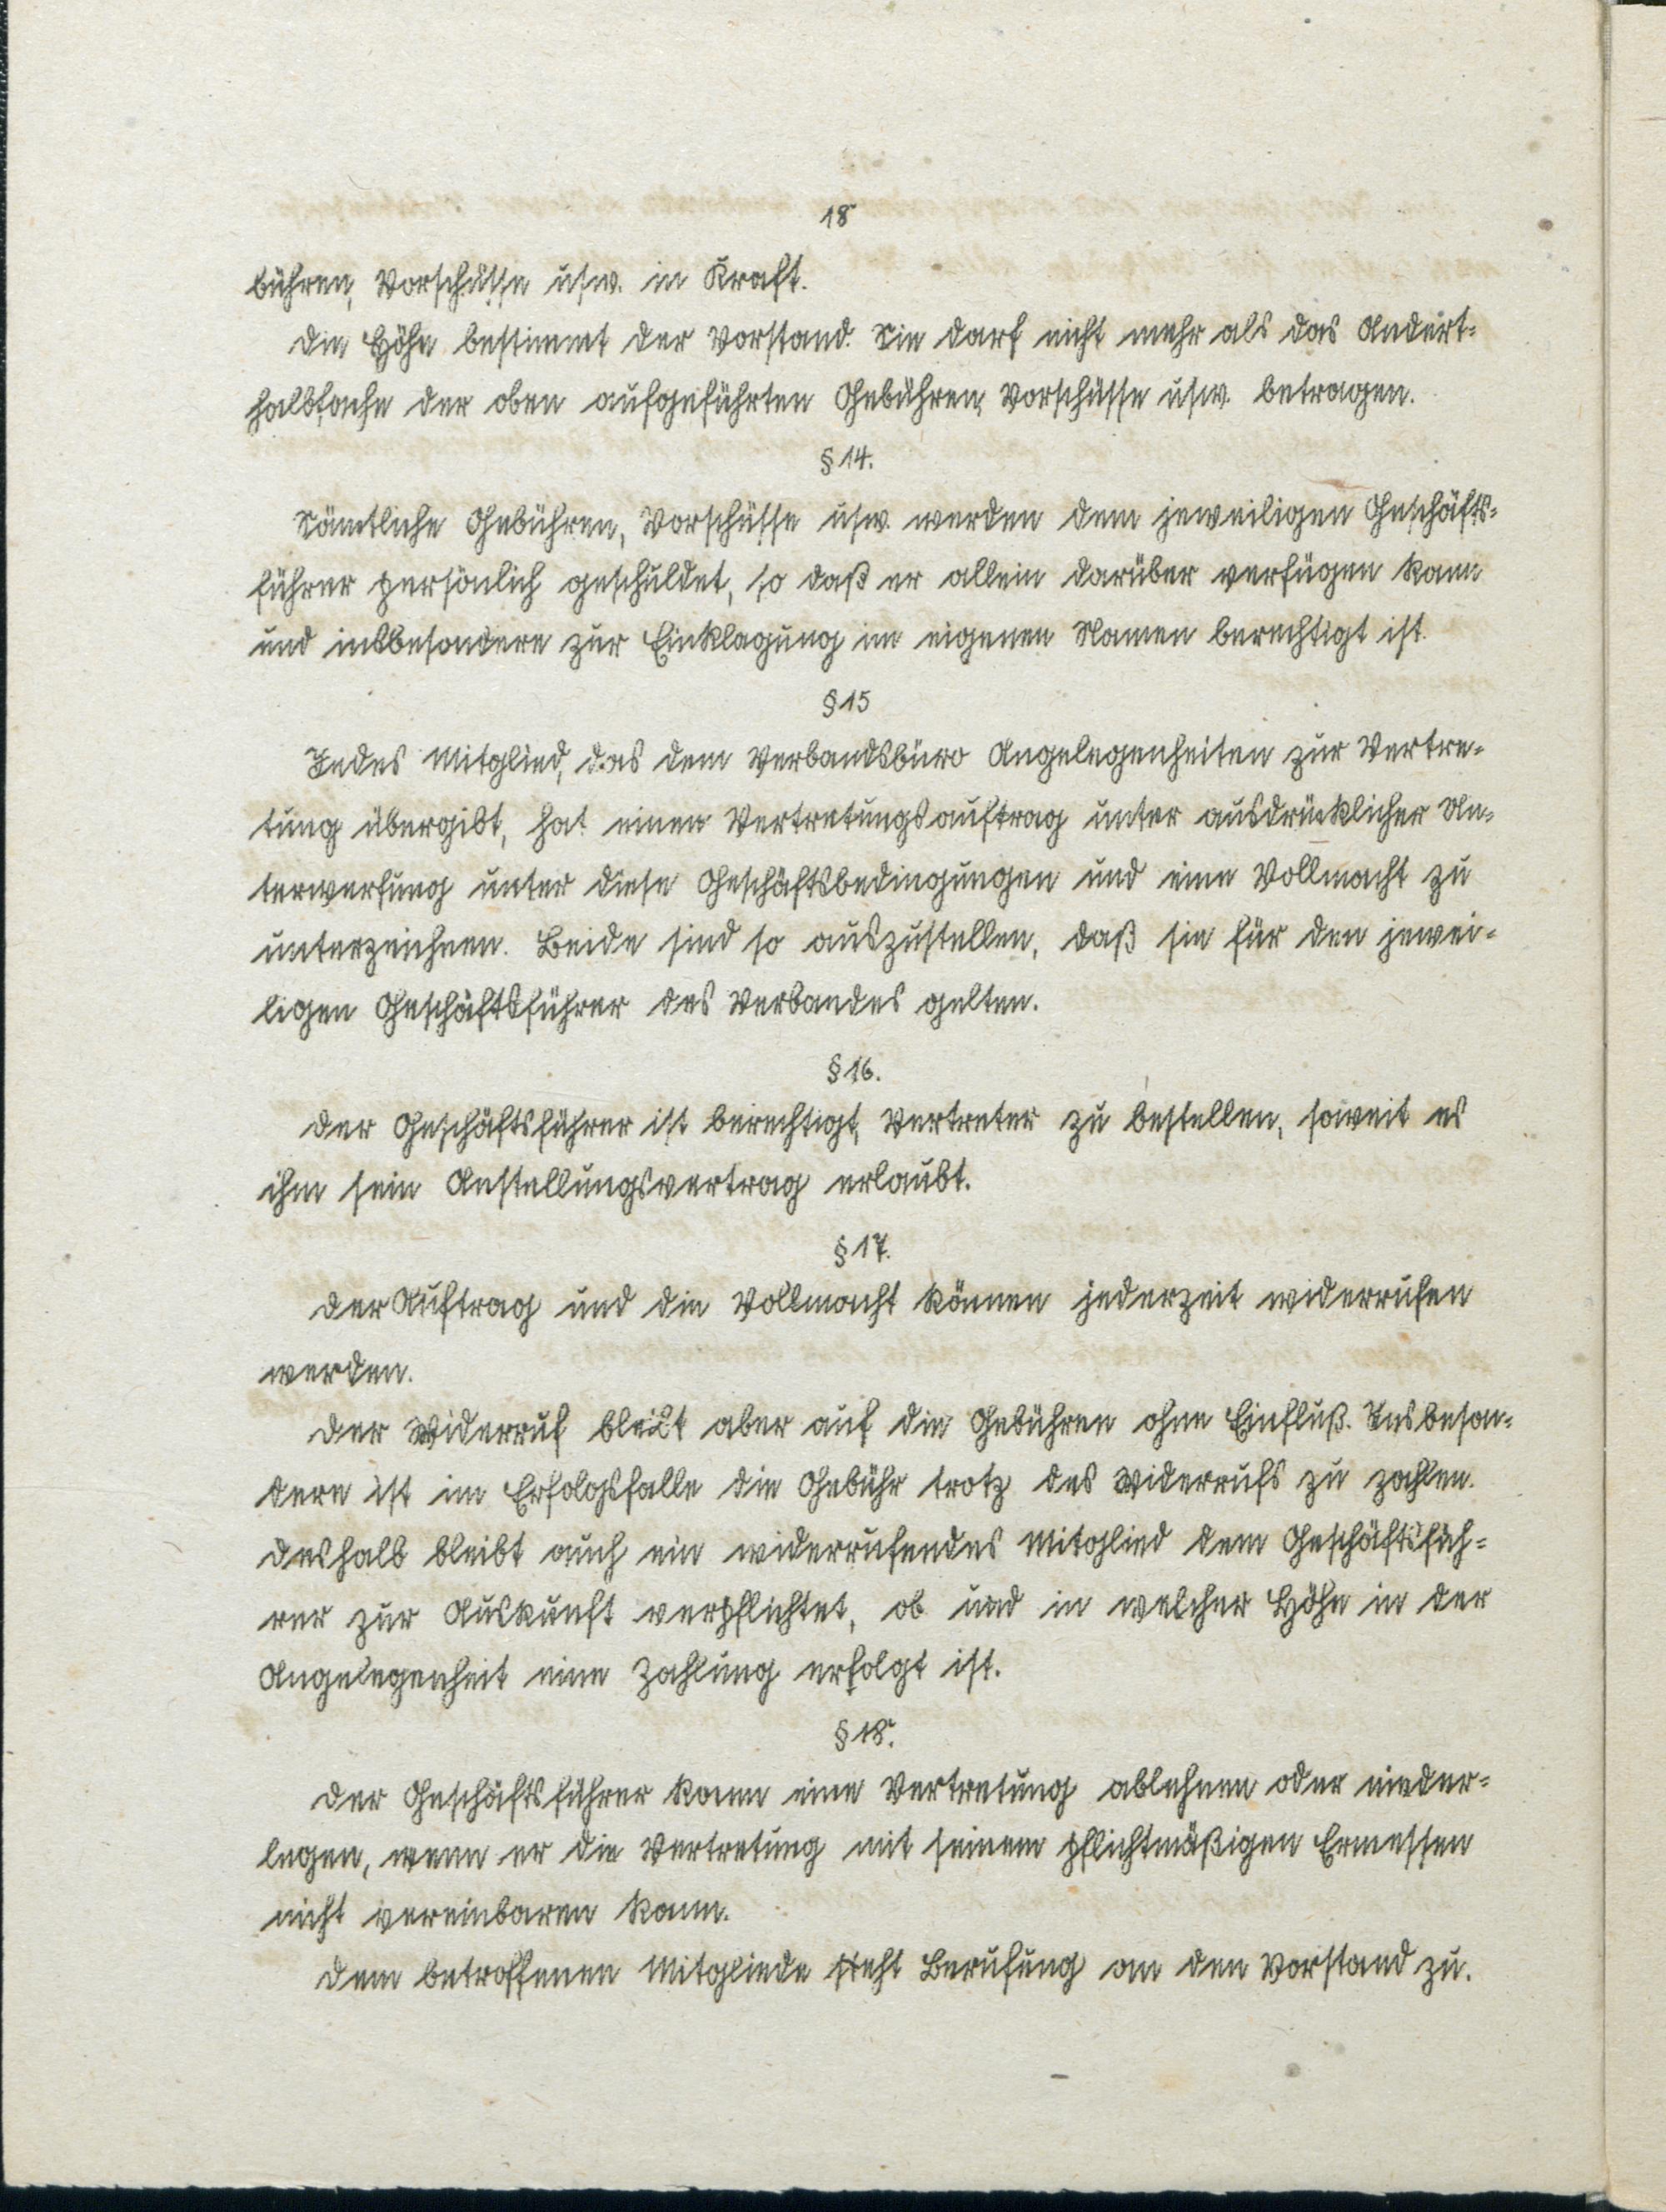 18
bühren, Vorschüsse usw. in Kraft.
Die Höhe bestimmt der Vorstand. Sie darf nicht mehr als das Andert=
halbfache der oben aufgeführten Gebühren, Vorschüsse usw. betragen.
§ 14.
Sämtliche Gebühren, Vorschüsse usw. werden dem jeweiligen Geschäfts=
führer persönlich geschuldet, so daß er allein darüber verfügen kann
und insbesondere zur Einklagung im eigenen Namen berechtigt ist.
§ 15
Jedes Mitglied, das dem Verbandsbüro Angelegenheiten zur Vertre=
tung übergibt, hat einen Vertretungsauftrag unter ausdrücklicher Un=
terwerfung unter diese Geschäftsbedingungen und eine Vollmacht zu
unterzeichnen. Beide sind so auszustellen, daß sie für den jewei=
ligen Geschäftsführer des Verbandes gelten.
§ 16.
Der Geschäftsführer ist berechtigt, Vertreter zu bestellen, soweit es
ihm sein Anstellungsvertrag erlaubt.
§ 17.
Der Auftrag und die Vollmacht können jederzeit widerrufen
werden.
Der Widerruf bleibt aber auf die Gebühren ohne Einfluß. Insbeson=
dere ist im Erfolgsfalle die Gebühr trotz des Widerrufs zu zahlen.
Deshalb bleibt auch ein widerrufendes Mitglied dem Geschäftsfüh=
rer zur Auskunft verpflichtet, ob und in welcher Höhe in der
Angelegenheit eine Zahlung erfolgt ist.
§ 18.
Der Geschäftsführer kann eine Vertretung ablehnen oder nieder=
legen, wenn er die Vertretung mit seinem pflichtmäßigen Ermessen
nicht vereinbaren kann.
Dem betroffenen Mitgliede steht Berufung an den Vorstand zu.